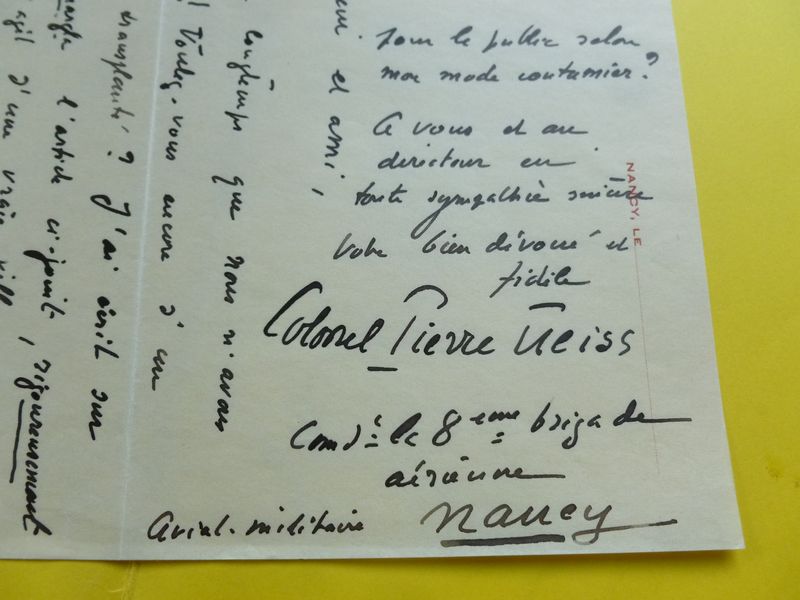 pour le public selon
mon mode coutumier ?
A vous et au
directeur en
toute sympathie sincère
Votre bien dévoué et
fidèle
Colonel Pierre Weiss
Comdt le 8eme brigade
aérienne
Nancy
Avial. militaire
NANCY, LE
et ami,
longtemps que nous n'avons
! Voulez-vous encore d'un
transplanté ? J'ai écrit sur
l'article ci-joint, rigoureusement
agit d'une vraie